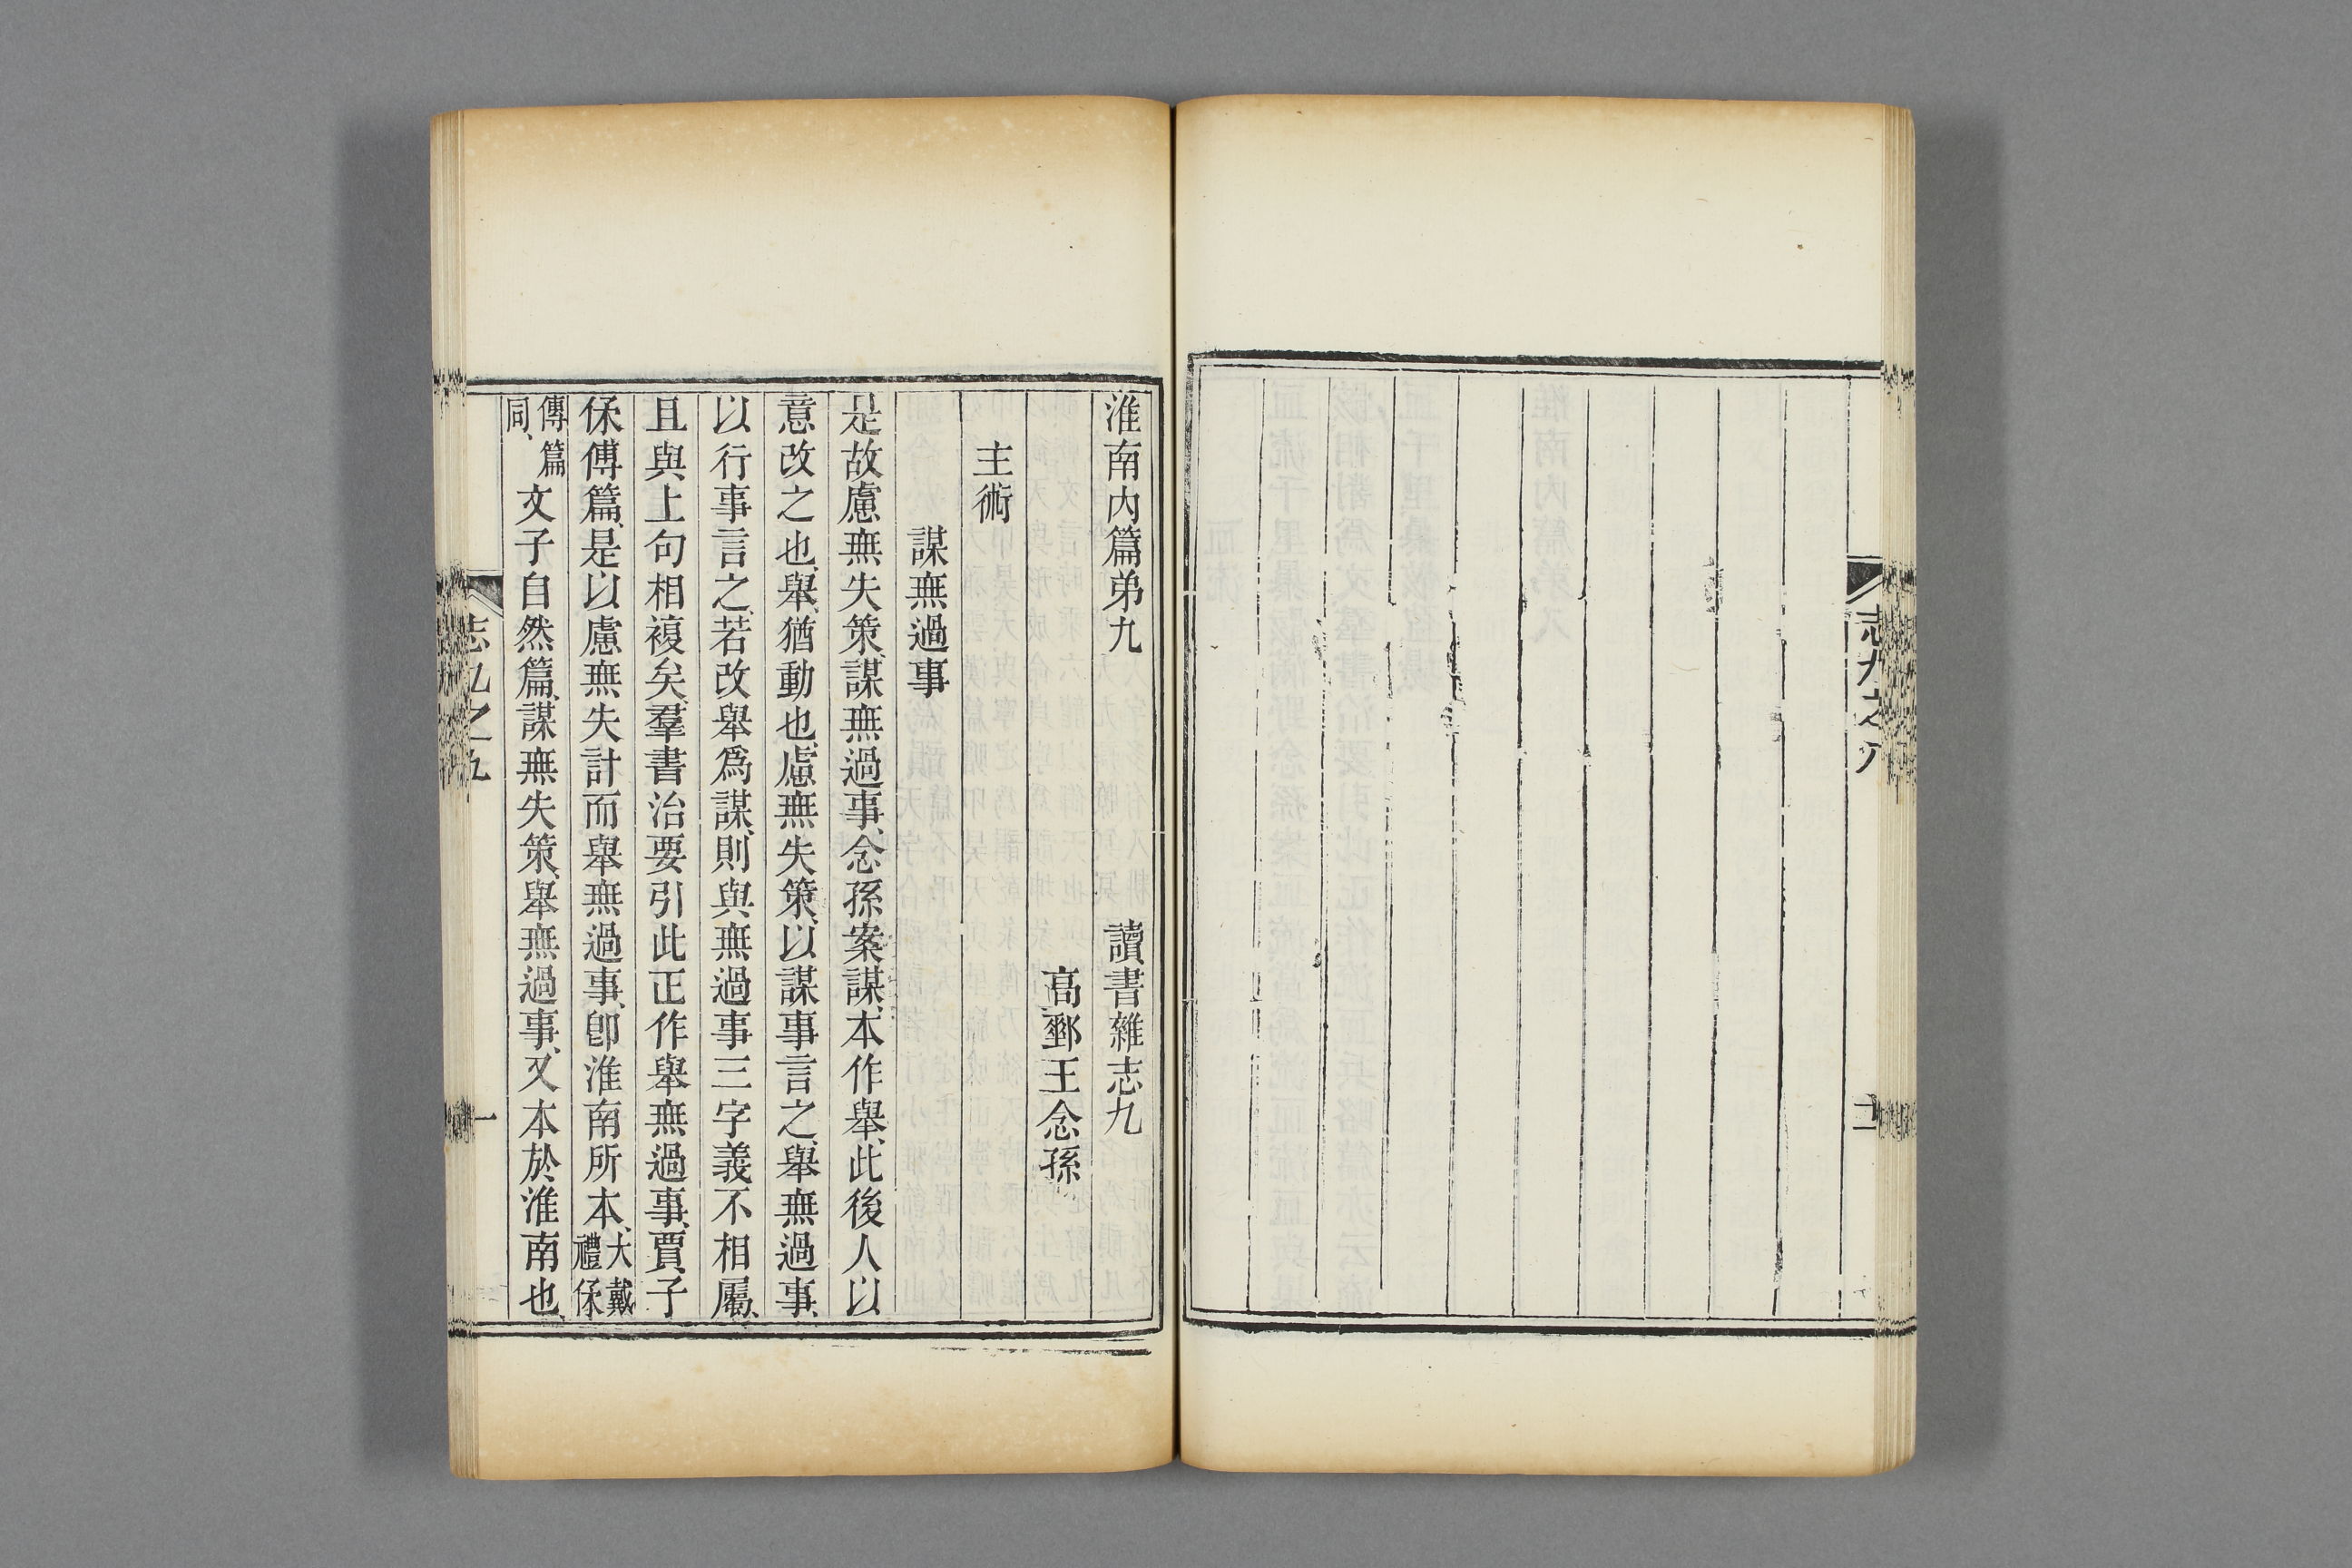 志九之八
十二
淮南內篇弟九　讀書雜志九
高郵王念孫
主術
謀無過事
是故慮無失策、謀無過事、念孫案謀、本作舉、此後人以
意改之也、舉、猶動也、慮無失策、以謀事言之、舉無過事、
以行事言之、若改舉爲謀、則與無過事三字義不相屬、
且與上句相複矣、羣書治要引此正作舉無過事、賈子
保傅篇、是以慮無失計而舉無過事、卽淮南所本、大戴禮保
傅篇同、文子自然篇、謀無失策、舉無過事、又本於淮南也、
志九之九
一